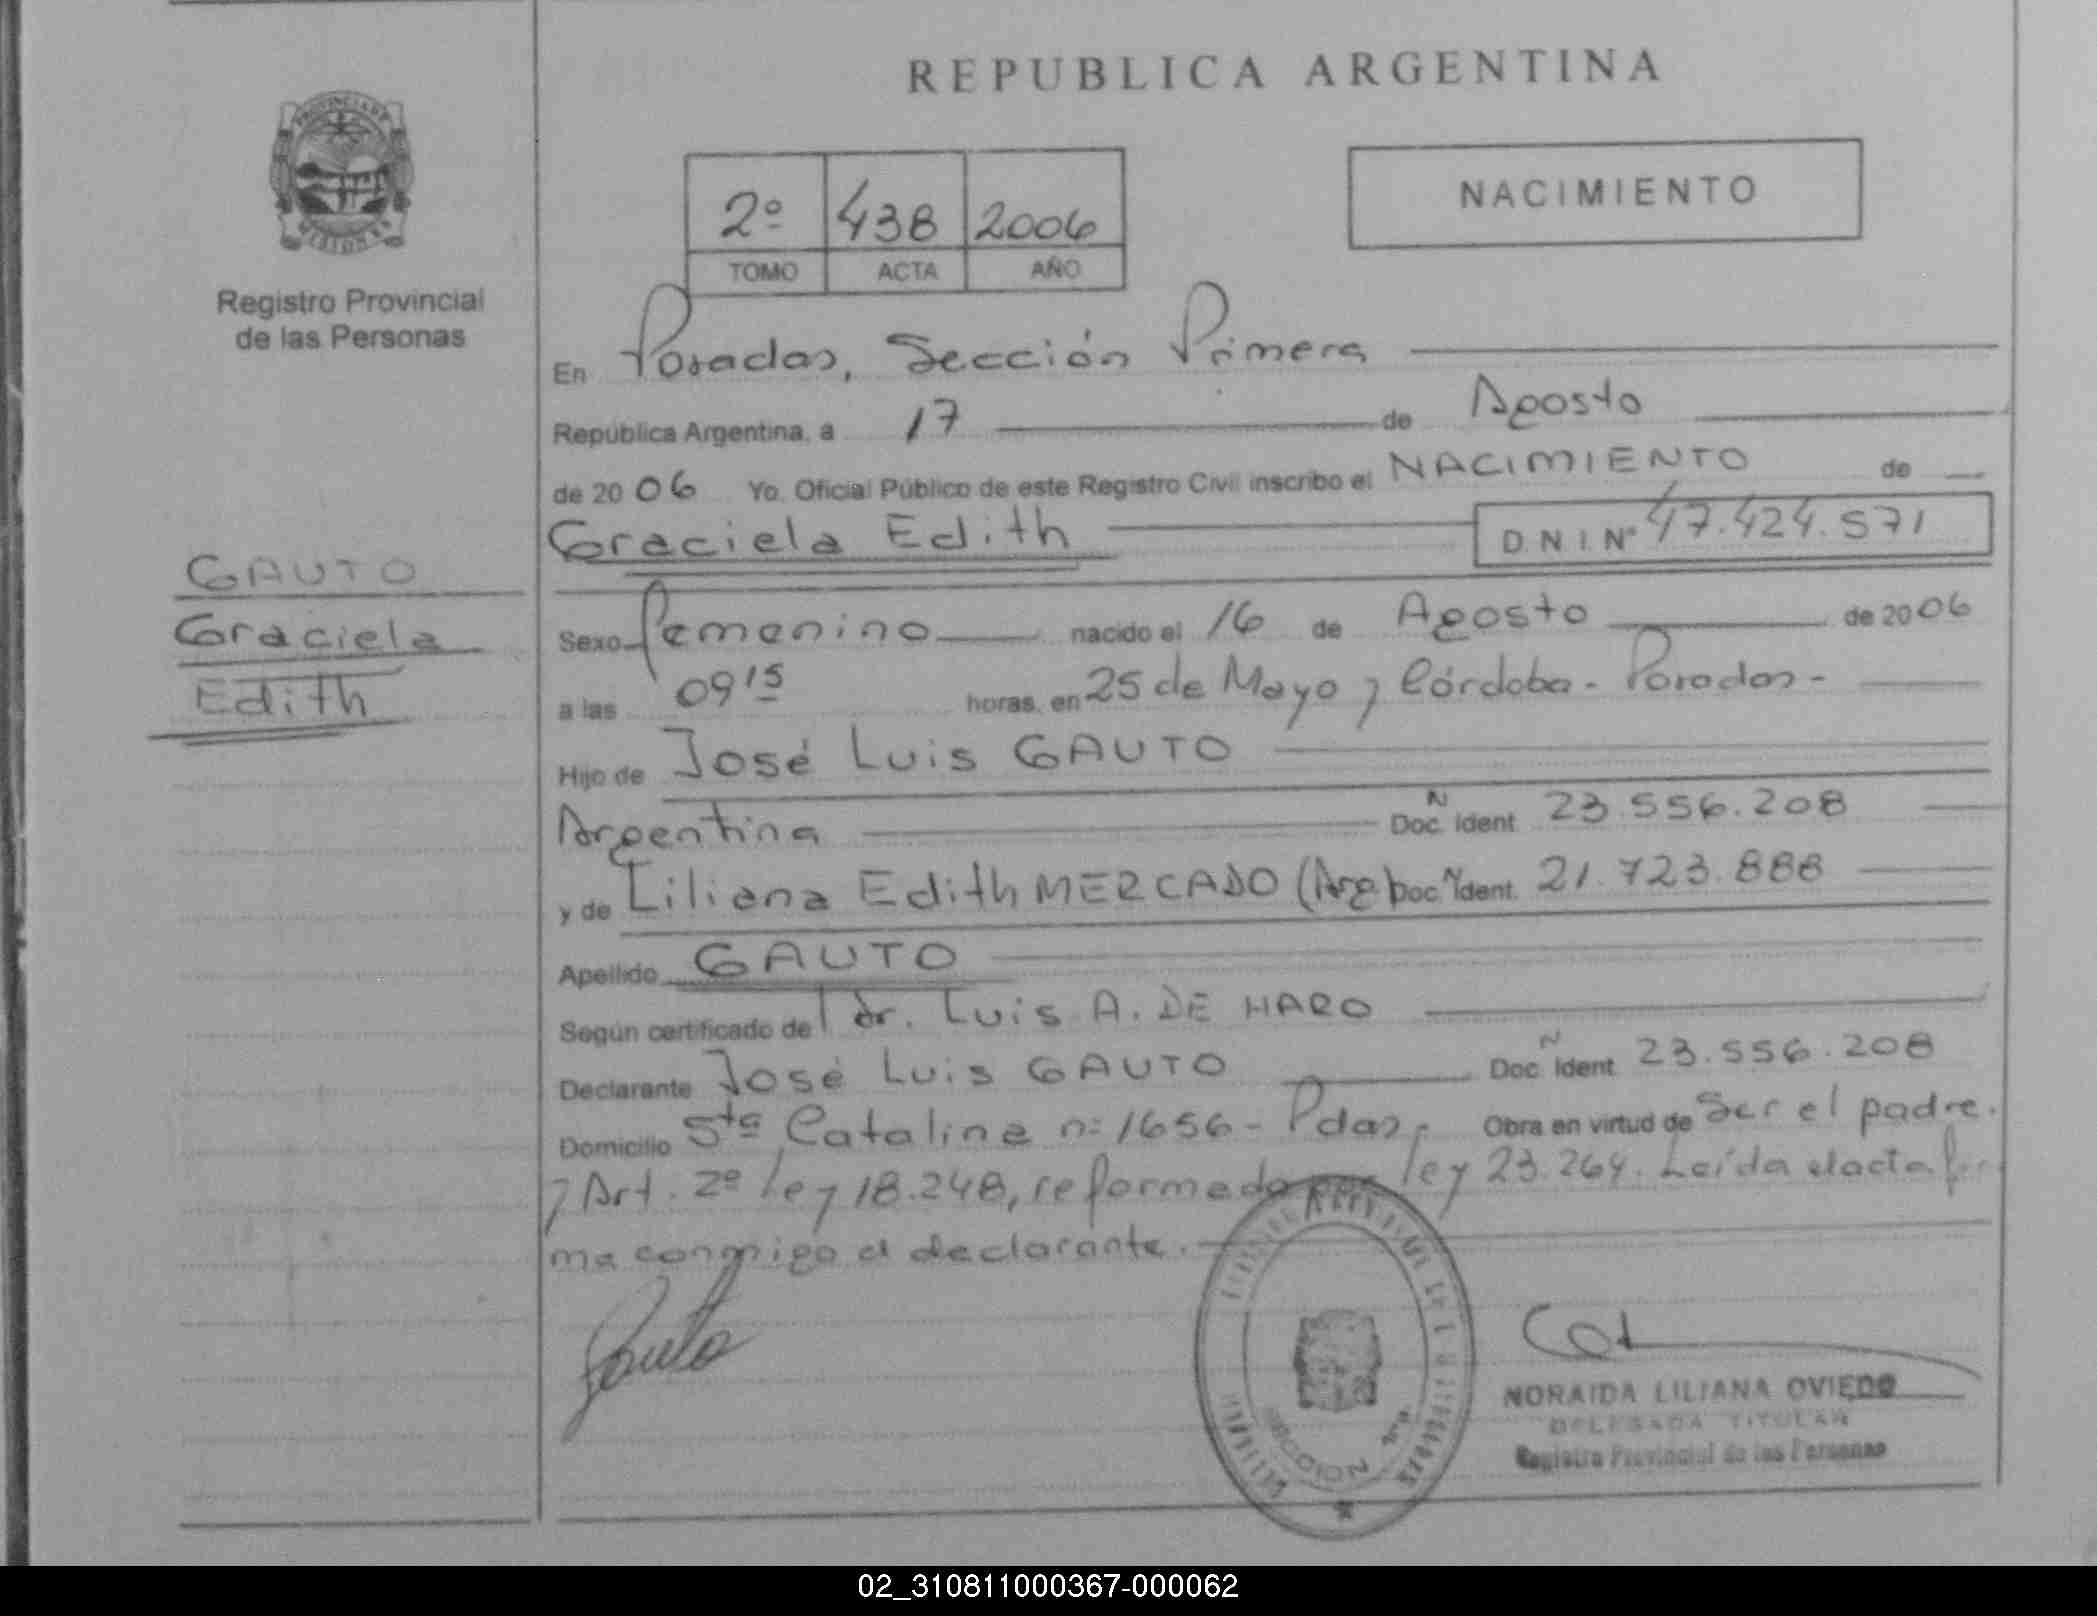 REPUBLICA ARGENTINA
PROVINCIA DE
MISIONES
Registro Provincial
de las Personas
2º 438 2006
TOMO ACTA AÑO
NACIMIENTO
En Posadas, Sección Primera
República Argentina, a 17 de Agosto
de 2006 Yo, Oficial Público de este Registro Civil inscribo el NACIMIENTO de
Graciela Edith
D N I Nº 47.424.571
GAUTO
Graciela
Edith
Sexo Femenino nacido el 16 de Agosto de 2006
a las 09 15 horas, en 25 de Mayo y Córdoba - Posadas -
Hijo de José Luis GAUTO
Argentina Doc. N Ident. 23.556.208
y de Liliana Edith MERCADO (Arg) Doc. N Ident. 21.723.888
Apellido GAUTO
Según certificado de Dr. Luis A. DE HARO
Declarante José Luis GAUTO Doc. N Ident. 23.556.208
Domicilio Sta Catalina nº 1656 - Pdas. Obra en virtud de Ser el padre.
y Art. 2º ley 18.248, reformada por ley 23.264. Leída el acta fir
ma conmigo el declarante.
Gauto
NORAIDA LILIANA OVIEDO
DELEGADA TITULAR
Registro Provincial de las Personas
02_310811000367-000062